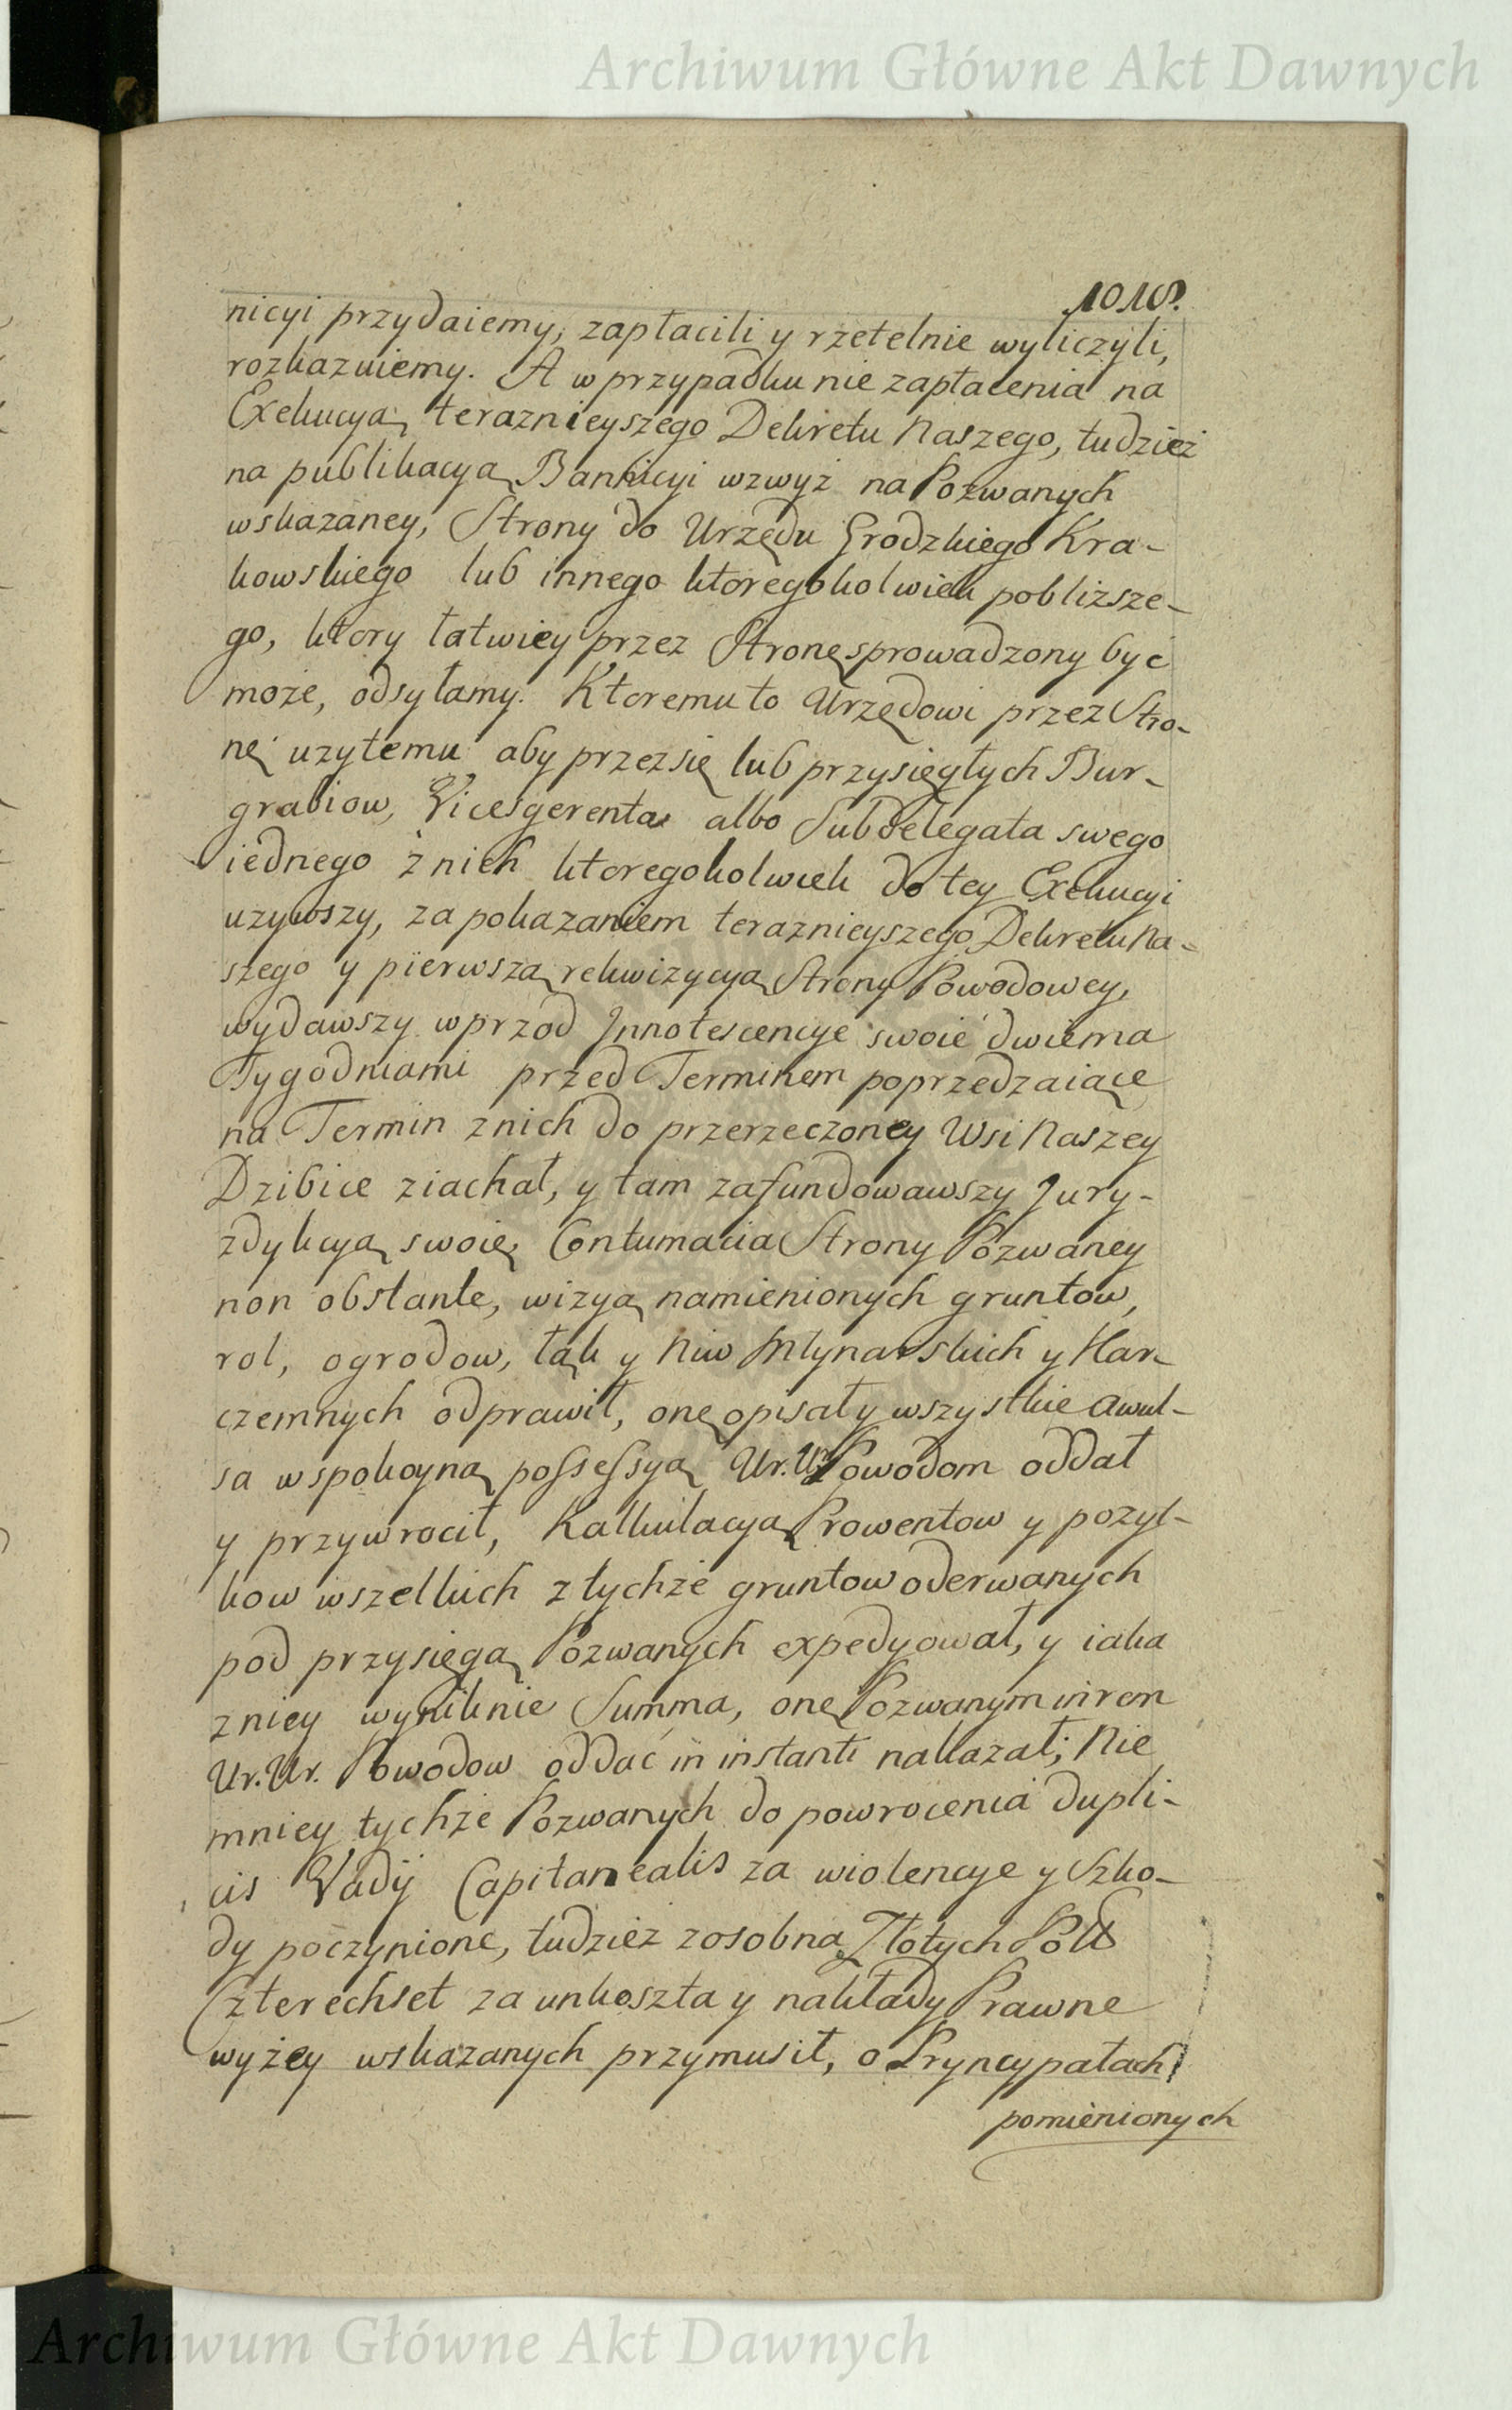 Archiwum Główne Akt Dawnych
1018.
nicyi przydaiemy, zapłacili y rzetelnie wyliczyli,
rozkazuiemy. A w przypadku nie zapłacenia na
Exekucyą teraznieyszego Dekretu Naszego, tudzież
na publikacyą Bannicyi wzwyż na Pozwanych
wskazaney, Strony do Urzędu Grodzkiego Kra-
kowskiego lub innego ktoregokolwiek pobliższe-
go, ktory łatwiey przez Stronę sprowadzony byc
może, odsyłamy. Ktoremu to Urzędowi przez Stro-
nę użytemu aby przez się lub przysięgłych Bur-
grabiow, Vicesgerenta albo Subdelegata swego
iednego z nich ktoregokolwiek do tey Exekucyi
uzywszy, za pokazaniem teraznieyszego Dekretu Na-
szego y pierwszą rekwizycyą Strony Powodowey,
wydawszy wprzod Innotescencye swoie dwiema
Tygodniami przed Terminem poprzedzaiące
na Termin z nich do przerzeczoney Wsi Naszey
Dzibice ziachał, y tam zafundowawszy Jury-
zdykcyą swoię, Contumacia Strony Pozwaney
non obstante, wizyą namienionych gruntow,
rol, ogrodow, łąk y Niw Młynarskich y Kar-
czemnych odprawił, onę opisał y wszystkie awul-
sa w spokoyną possessyą Ur. Ur. Powodom oddał
y przywrocił, Kalkulacyą Prowentow y pozyt-
kow wszelkich z tychże gruntow oderwanych
pod przysięgą Pozwanych expedyował, y iaka
z niey wyniknie Summa, onę Pozwanym in rem
Ur. Ur. Powodow oddać in instanti nakazał; Nie
mniey tychże Pozwanych do powrocenia dupli-
cis Vadij Capitanealis za wiolencye y Szko-
dy poczynione, tudzież zosobna Złotych Pols
Czterechset za unkoszta y nakłady Prawne
wyżey wskazanych przymusił, o Pryncypałach
pomienionych
Archiwum Główne Akt Dawnych